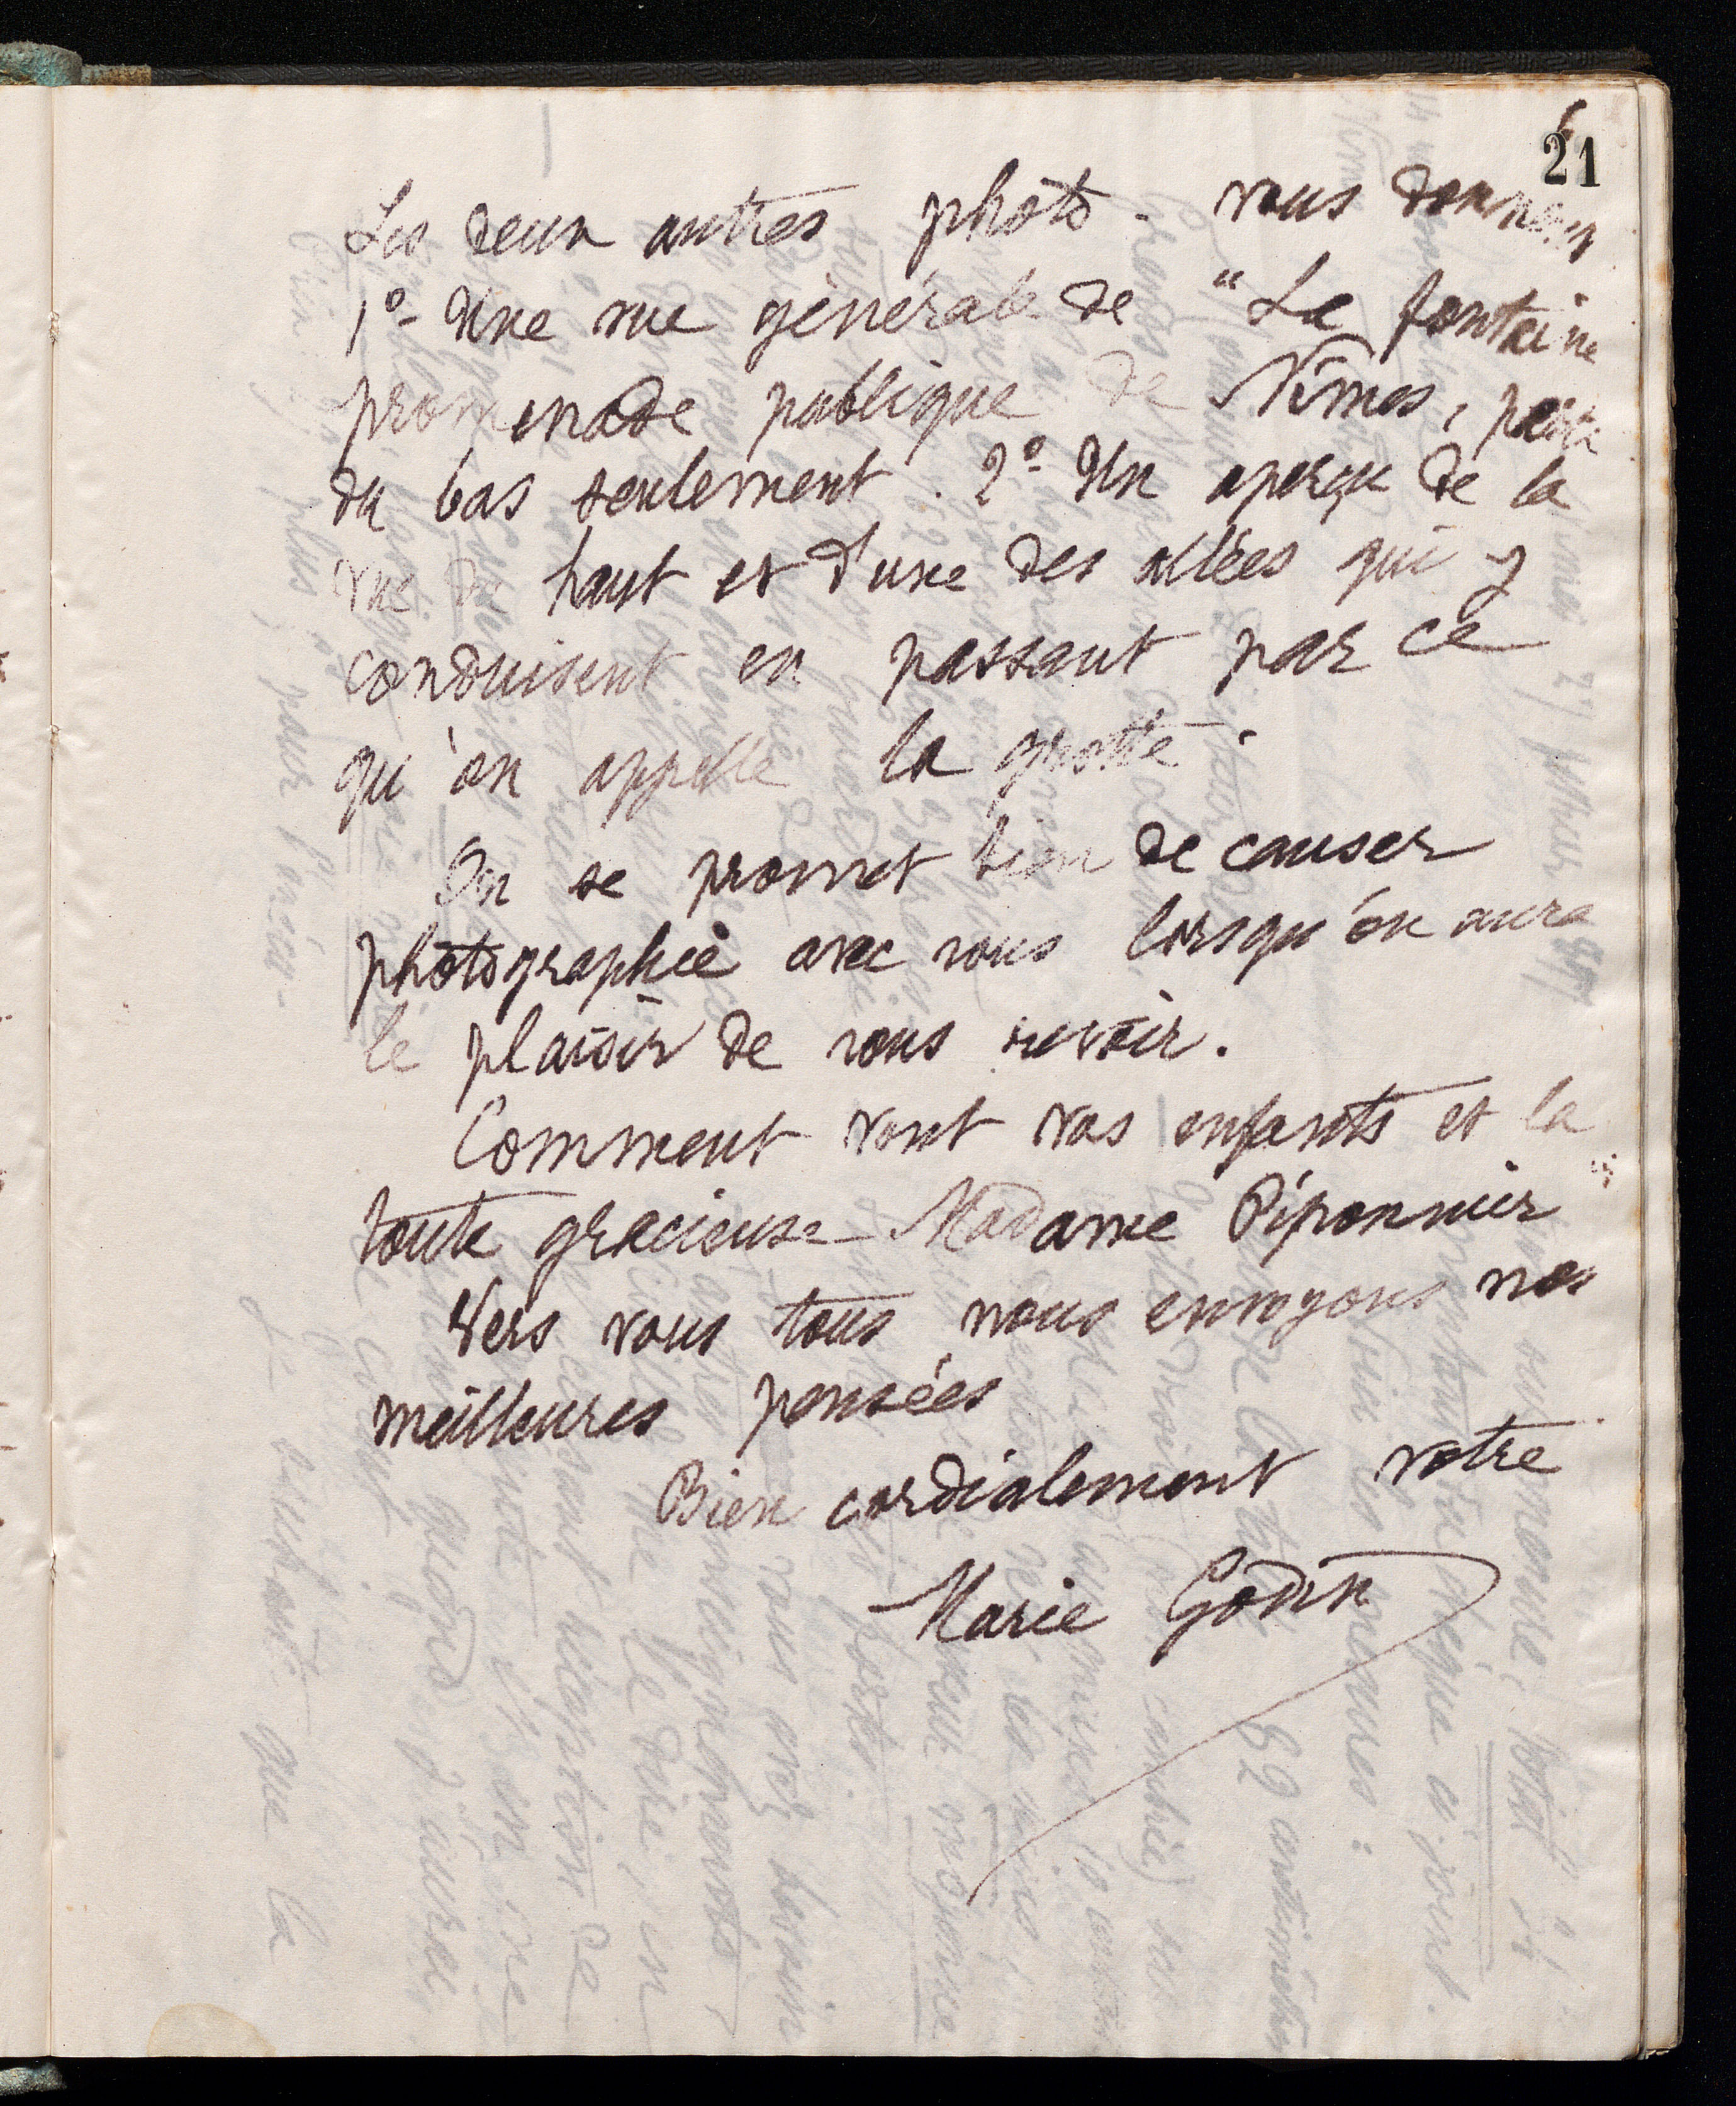 21
Les deux autres photo. vous donnent
1º- Une vue générale de "La fontaine
promenade publique de Nîmes, partie
du bas seulement. 2º- Un aperçu de la
vue du haut et d'une des allées qui y
conduisent en passant par ce
qu'on appelle la grotte.
On se promet bien de causer
photographie avec vous lorsqu'on aura
le plaisir de vous revoir.
Comment vont vos enfants et la
toute gracieuse Madame Piponnier
Vers vous tous nous envoyons nos
meilleures pensées
Bien cordialement votre
Marie Godin